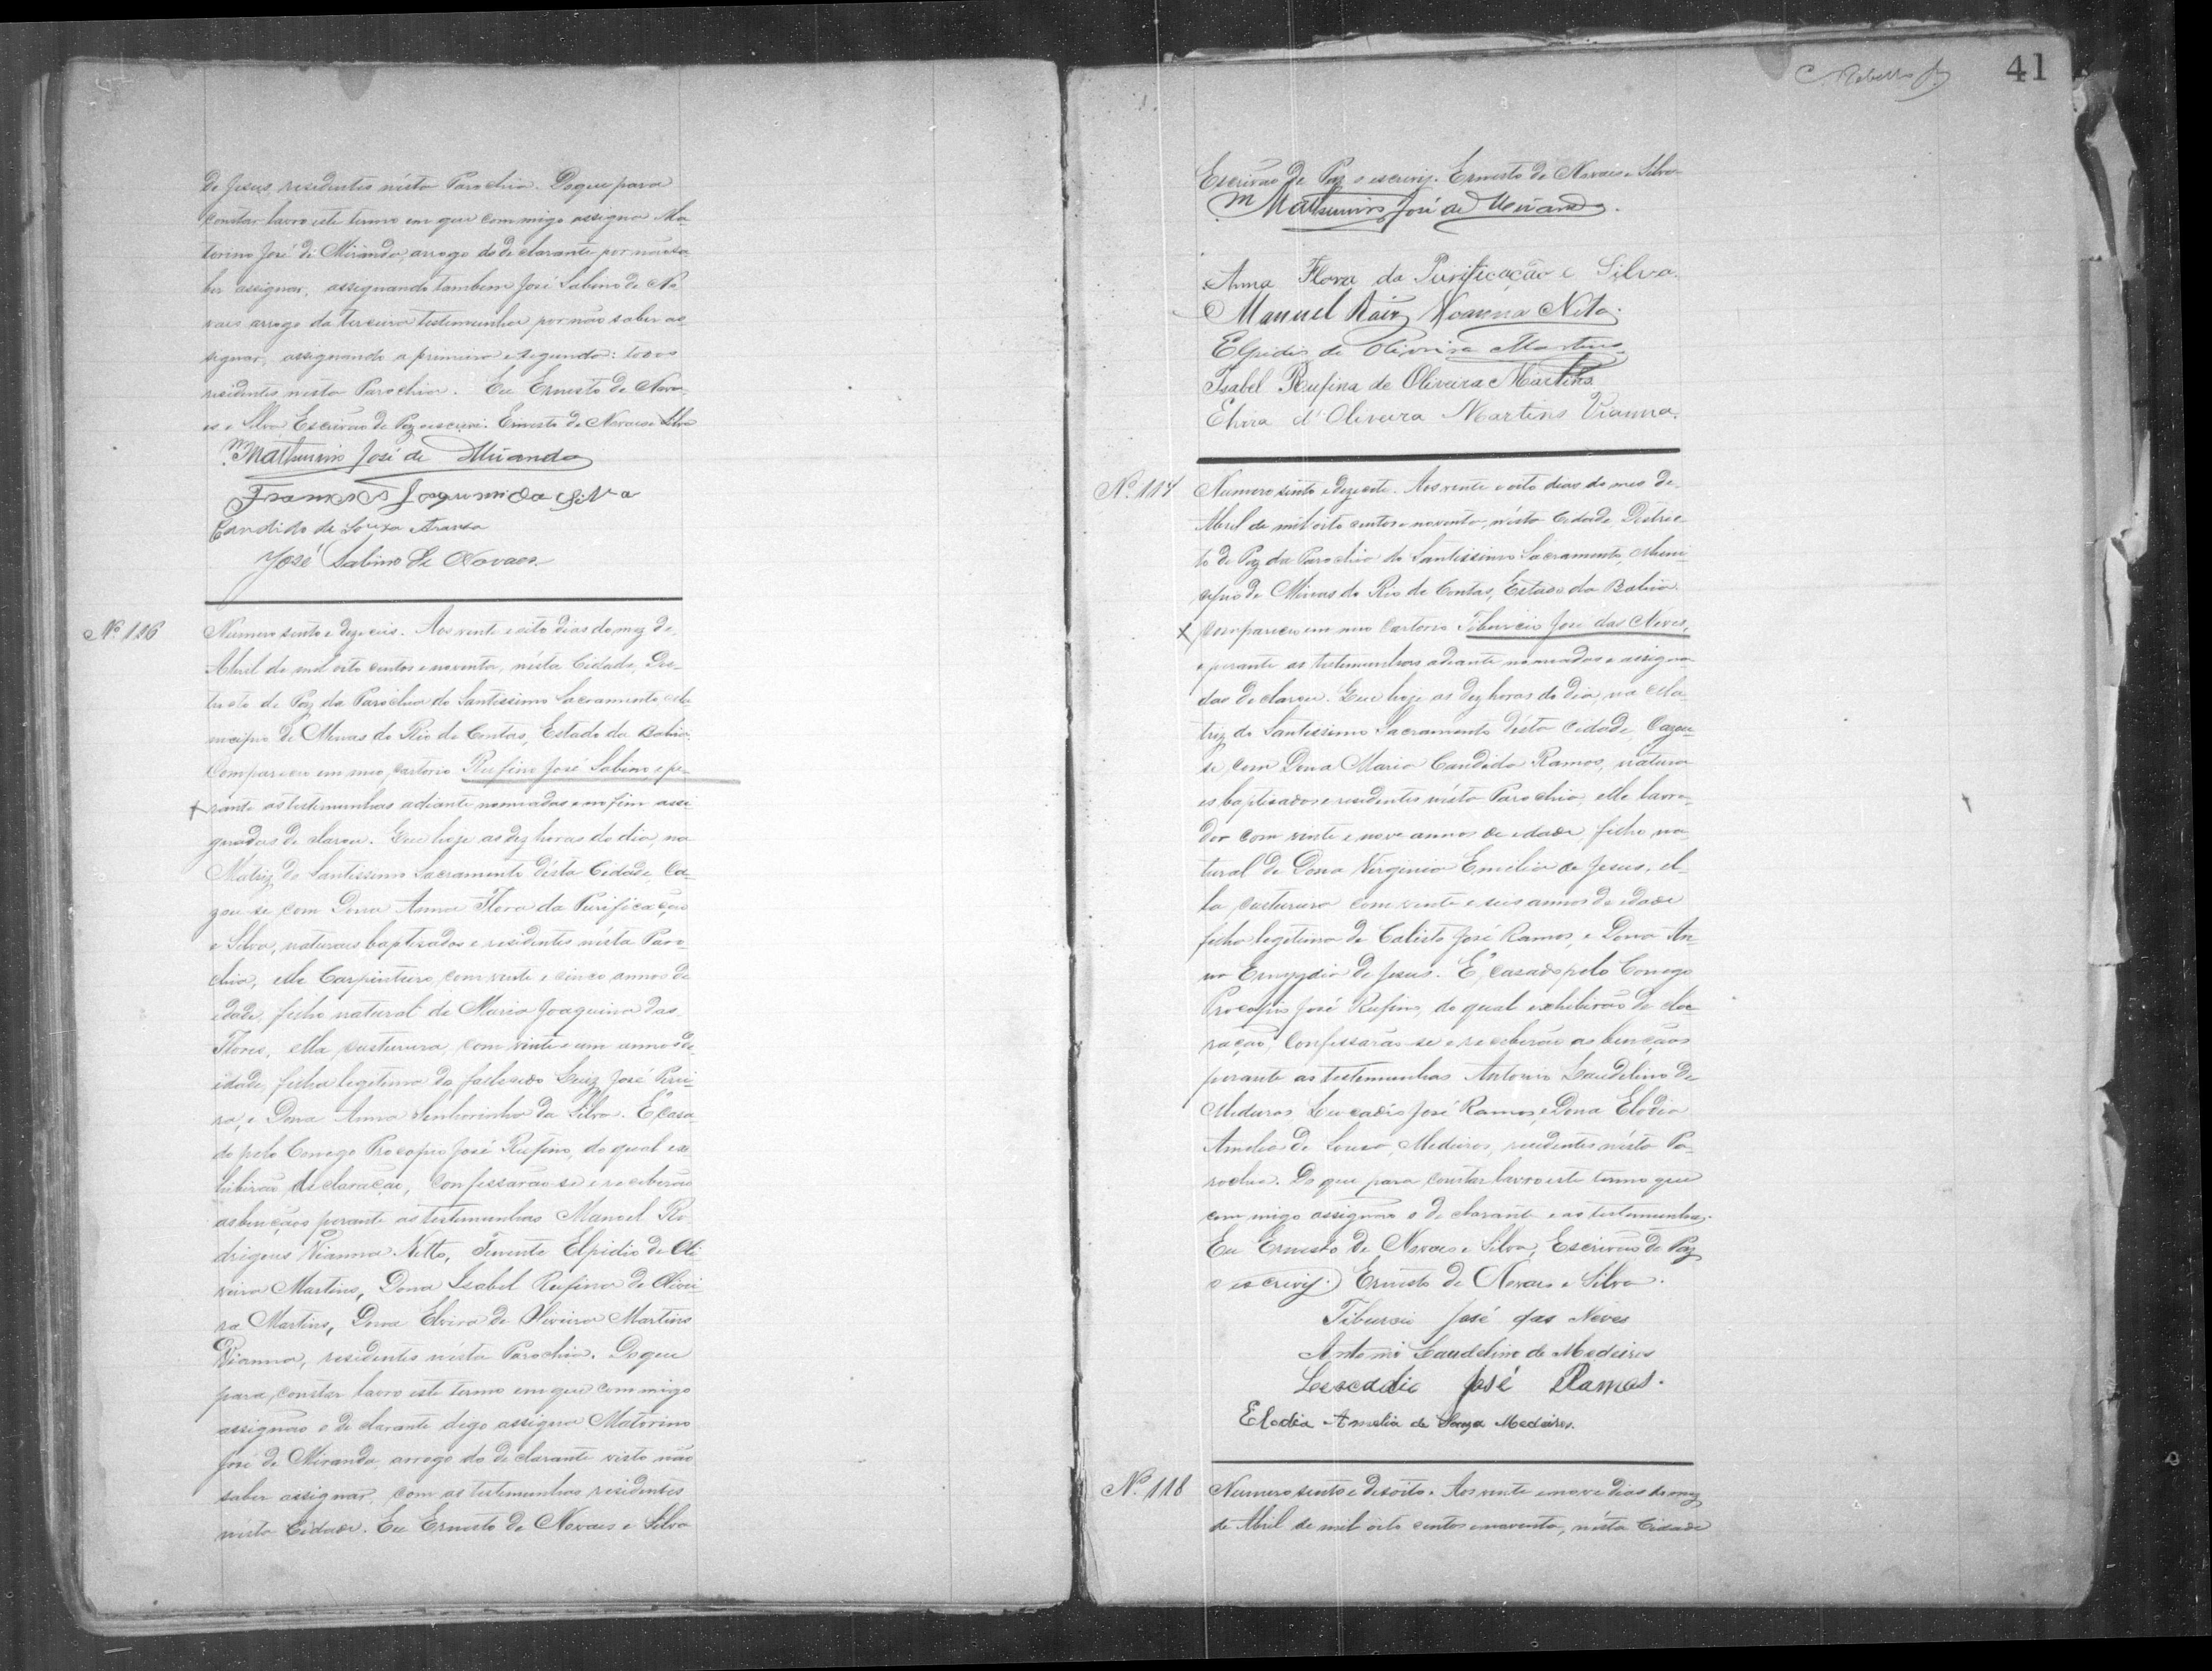 de Jesus, residentes nésta Parochia. Do que para
constar lavro este termo em que commigo assigna Ma-
torino José de Miranda, arrogo do declarante por não sa-
ber assignar, assignando tambem José Sabino de No-
vaes arrogo da terceira testemunha por não saber as-
signar, assignando a primeira e segunda: todos
residentes nésta Parochia. Eu Ernesto de Nova-
es e Silva Escrivão de Paz o escrevi. Ernesto de Novaes e Silva
Mathurino José de Miranda
Francisco Joaquim da Silva
Candido de Souza Aranha
José Sabino de Novaes
Nº 116
Numero sento e dezeceis. Aos vente e oito dias do mez de
Abril de mil oito centos e noventa, nésta Cidade, Dis-
tricto de Paz da Parochia do Santissimo Sacramento, Mu-
nicipio de Minas do Rio de Contas, Estado da Bahia.
Compareceu em meu cartorio Rufino José Sabino, e pe-
rante as testemunhas adiante nomeadas e no fim assi-
gnadas declarou. Que hoje as dez horas do dia, na
Matriz do Santissimo Sacramento désta Cidade, Ca-
zou-se com Dona Anna Flora da Purificação
e Silva, naturaes baptisados e residentes nésta Paro-
chia, elle Carpinteiro, com vente e cinco annos de
edade, filho natural de Maria Joaquina das
Flores, ella custureira, com vinte e um annos de
idade, filha legitima do fallecido Luiz José Perei-
ra, e Dona Anna Senhorinha da Silva. E, casa-
do pelo Conego Procopio José Rufino, do qual exi-
hibirão declaração, confissarão-se e receberão
as bençãos perante as testemunhas Manoel Ro-
drigues Vianna Netto, Tenente Elpidio de Oli-
veira Martins, Dona Isabel Rufina de Olivei-
ra Martins, Dona Elvira de Oliveira Martins
Vianna, residentes nésta Parochia. Do que
para constar lavro este termo em que commigo
assignão o declarante digo assigna Matorino
José de Miranda, arrogo do declarante visto não
saber assignar, com as testemunhas residentes
nésta Cidade. Eu Ernesto de Novaes e Silva
41
Escrivão de Paz o escrevy. Ernesto de Novaes e Silva
Mathurino José de Miranda.
Anna Flora da Purificação e Silva.
Manuel Roiz Vianna Neto.
Elpidio de Oliveira Martins
Isabel Rufina de Oliveira Martins
Elvira d'Oliveira Martins Vianna.
Nº 117
Numero sento e dezecete. Aos vente e oito dias do mes de
Abril de mil oito centos e noventa, nésta Cidade, Distric-
to de Paz da Parochia do Santissimo Sacramento, Muni-
cipio de Minas do Rio de Contas, Estado da Bahia.
Compareceu em meu Cartorio Tiburcio José das Neves,
e perante as testemunhas adiante nomeadas e assigna-
das declarou. Que hoje as dez horas do dia, na Ma-
triz do Santissimo Sacramento désta Cidade, Cazou-
se com Dona Maria Candida Ramos, natura-
es baptisados e residentes nésta Parochia, elle lavra-
dor com vinte e nove annos de edade, filho na-
tural de Dona Virginia Emilia de Jesus, el-
la custureira com vente e seis annos de edade
filha legitima de Calisto José Ramos, e Dona An-
na Emygdia de Jesus. E, casado pelo Conego
Procopio José Rufino, do qual exhibirão decla-
ração, Confissarão-se e receberão as bençãos
perante as testemunhas Antonio Laudelino de
Medeiros Leocadio José Ramos, e Dona Elodia
Amelia de Souza Medeiros, residentes nésta Pa-
rochia. Do que para constar lavro este termo que
commigo assignão o declarante e as testemunhas.
Eu Ernesto de Novaes e Silva, Escrivão de Paz
o escrevy. Ernesto de Novaes e Silva.
Tiburcio José das Neves
Antonio Laudelino de Medeiros
Leocadio José Ramos.
Elodia Amelia de Souza Medeiros.
Nº 118
Numero sento e desoito. Aos vente e nove dias do mez
de Abril de mil oito centos e noventa, nésta Cidade